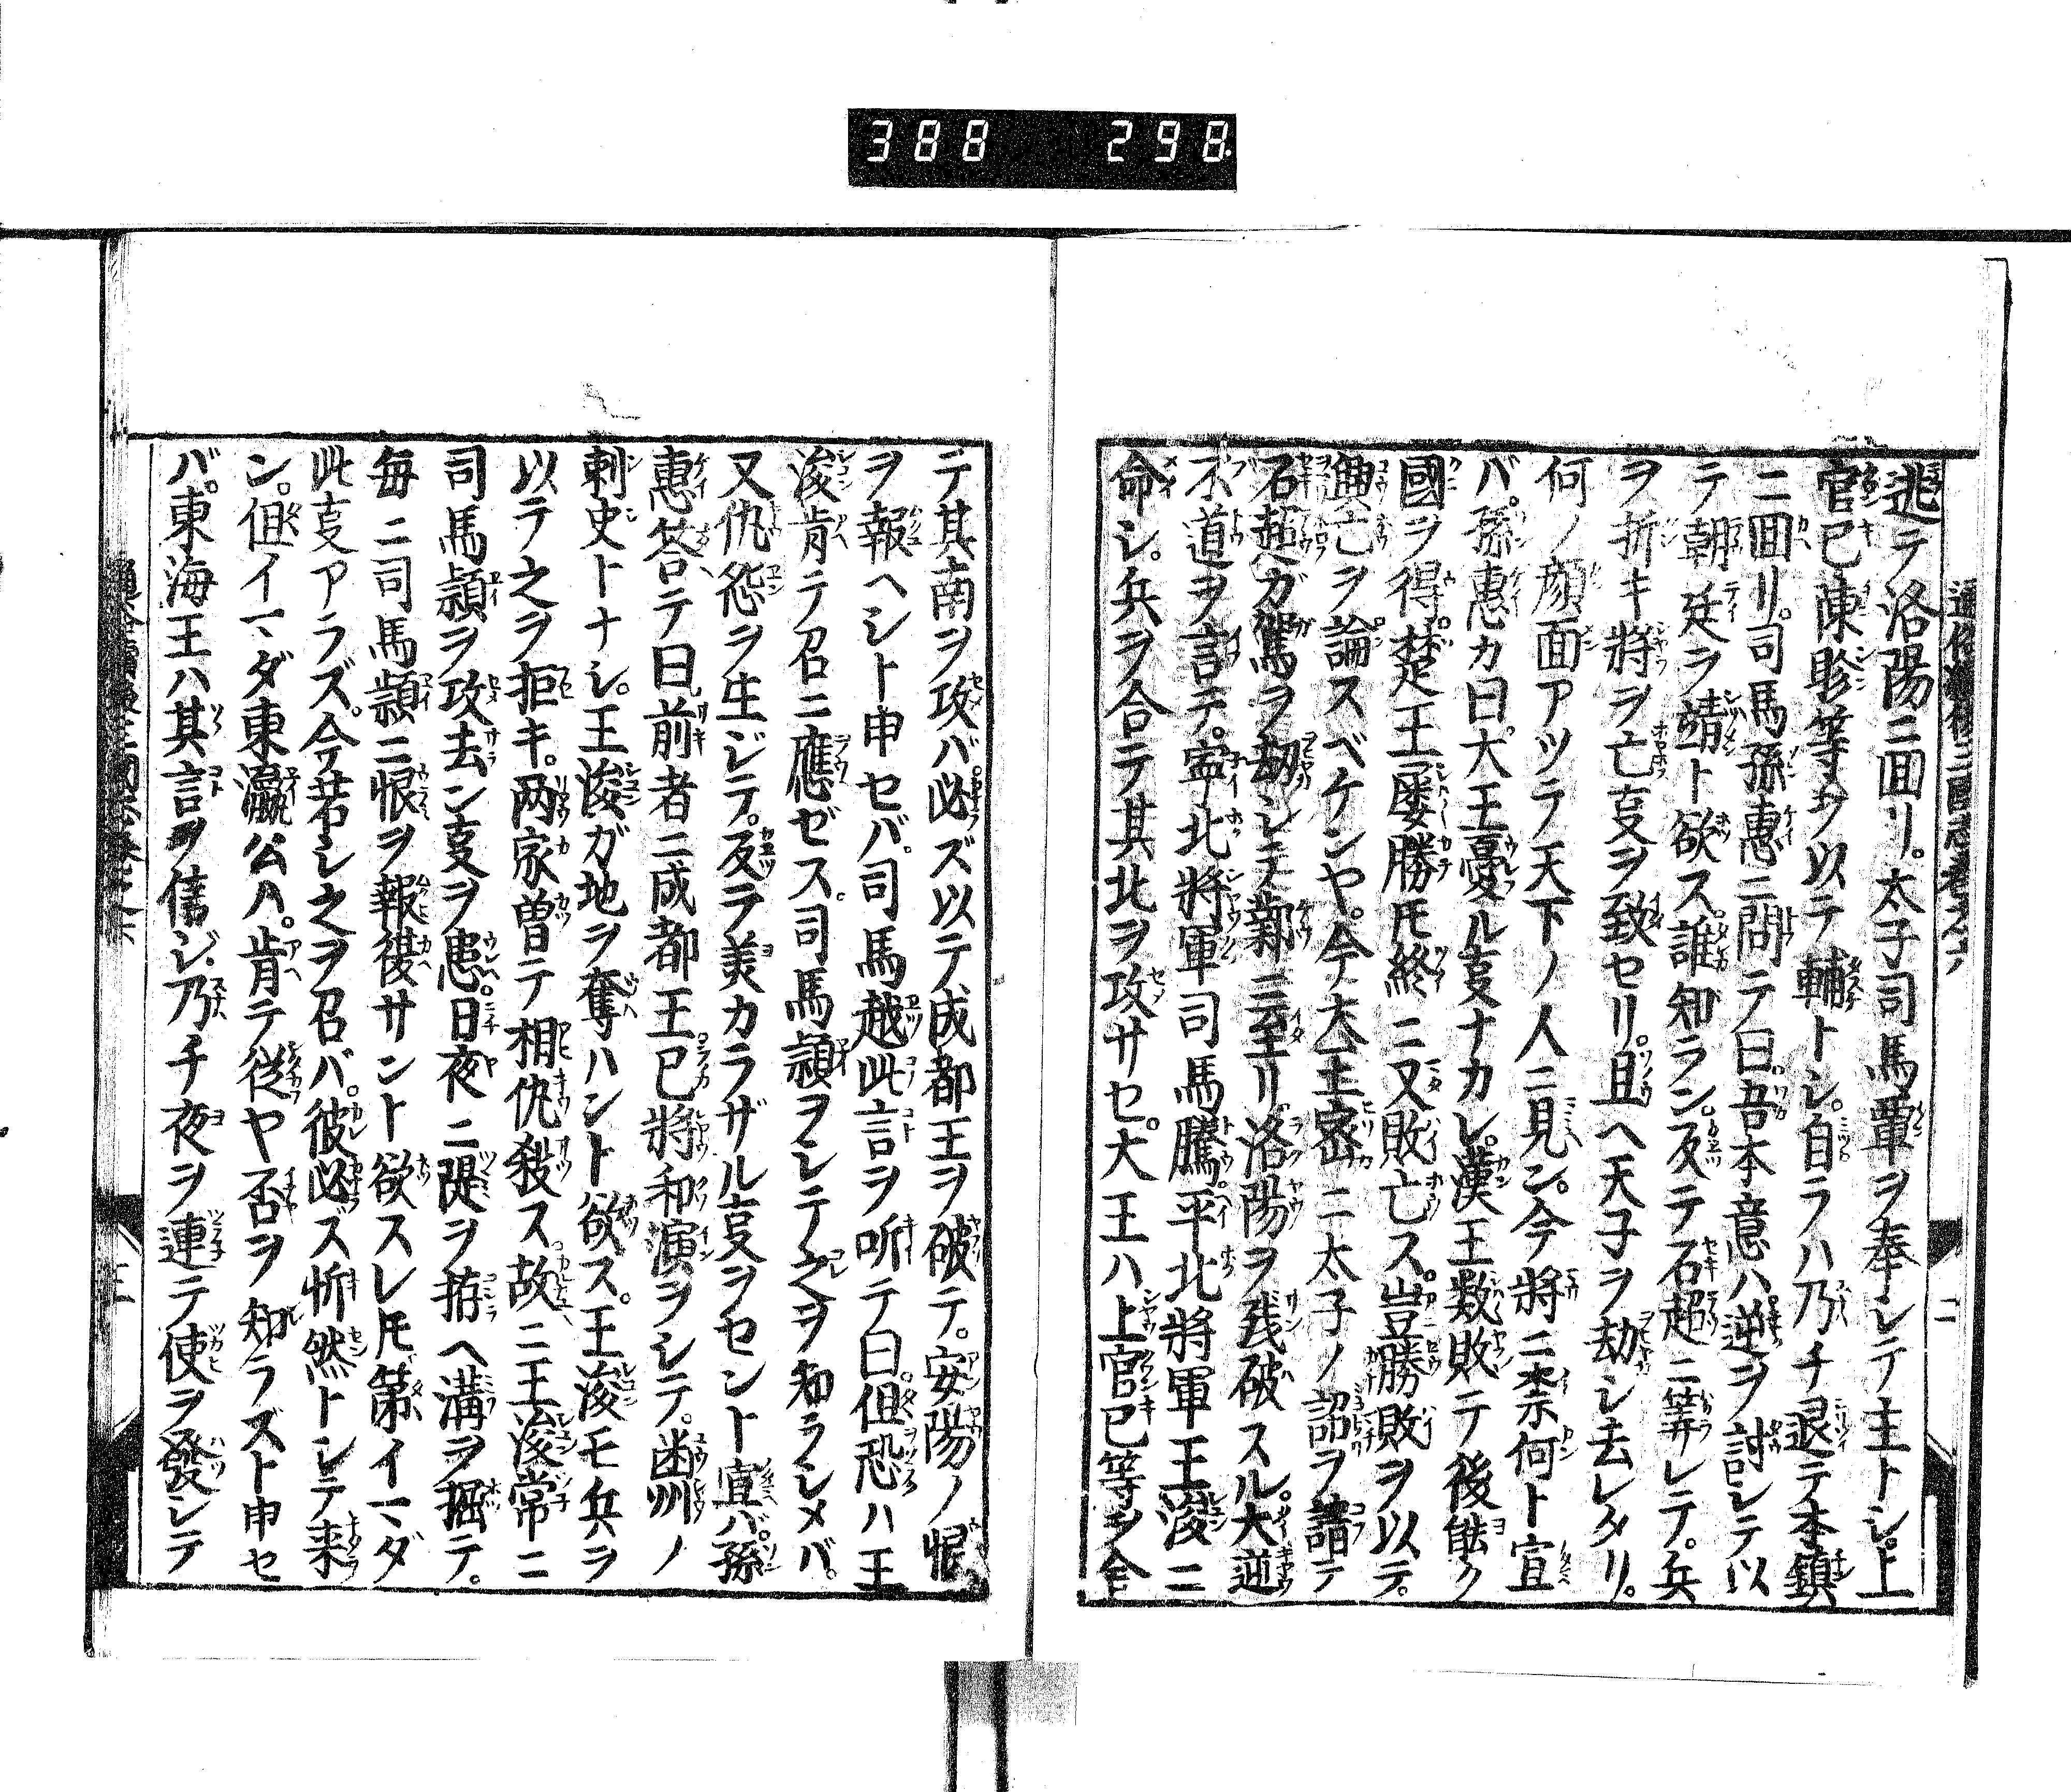 388 298
逃テ洛陽ニ囬リ。太子司馬覃ヲ奉シテ主トシ。上
官已陳眕等ヲ以テ輔トシ。自ラハ乃チ退テ本鎮
ニ囬リ。司馬孫惠ニ問テ曰。吾本意ハ。逆ヲ討シテ以
テ朝廷ヲ靖ト欲ス。誰知ラン。反テ石超ニ筭レテ。兵
ヲ折キ將ヲ亡㕝ヲ致セリ。且ヘ天子ヲ劫シ去レタリ。
何ノ顔面アツテ天下ノ人ニ見ン。今將ニ柰何ト宣
バ。孫惠カ曰。大王憂ル㕝ナカレ。漢王数敗テ後能ク
國ヲ得。楚王屡勝モ終ニ又敗亡ス。豈勝敗ヲ以テ。
興亡ヲ論スベケンヤ。今大王密ニ太子ノ詔ヲ請テ
石超ガ駕ヲ劫シテ鄴ニ至リ。洛陽ヲ残破スル。大逆
不道ヲ言テ。寧北將軍司馬騰。平北將軍王浚ニ
命シ。兵ヲ合テ其北ヲ攻サセ。大王ハ上官已等ヲ合
テ其南ヲ攻バ。必ズ以テ成都王ヲ破テ。安陽ノ恨
ヲ報ヘシト申セバ。司馬越此言ヲ听テ曰。但恐ハ王
浚肯テ召ニ應ゼス。司馬頴ヲシテ之ヲ知ラシメバ。
又仇怨ヲ生ジテ。反テ美カラザル㕝ヲセント宣バ。孫
惠答テ曰。前者ニ成都王已將和演ヲシテ。幽州ノ
刺史トナシ。王浚ガ地ヲ奪ハント欲ス。王浚モ兵ヲ
以テ之ヲ拒キ。两家曽テ相仇殺ス。故ニ王浚常ニ
司馬頴ヲ攻去ン㕝ヲ患。日夜ニ隄ヲ揹ヘ溝ヲ掘テ。
毎ニ司馬頴ニ恨ヲ報復サント欲スレモ第イマダ
此㕝アラズ。今若シ之ヲ召バ。彼必ズ忻然トシテ来
ン。但イマダ東瀛公ハ。肯テ從ヤ否ヲ知ラズト申セ
バ。東海王ハ其言ヲ信ジ。乃チ夜ヲ連テ使ヲ發シテ